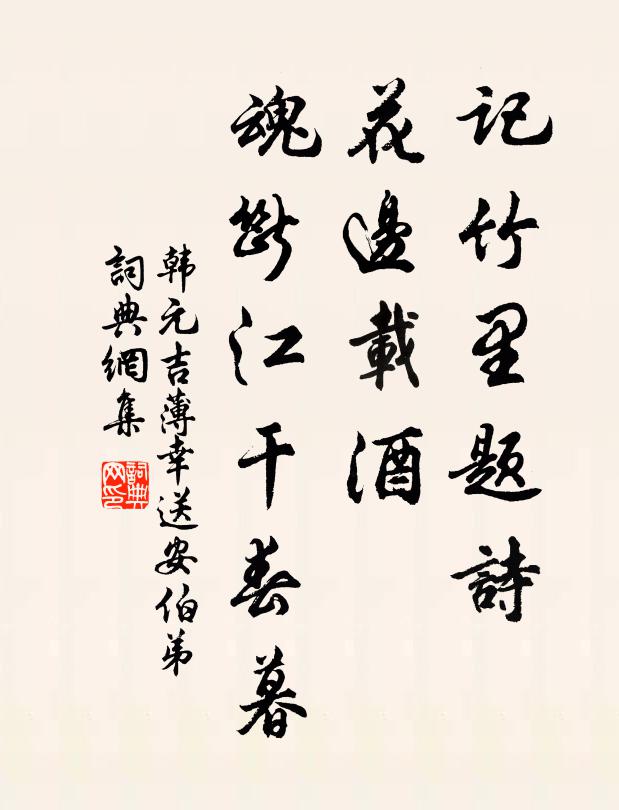 记竹里题詩
花邊載酒
魂斷江干春暮
韩元吉薄幸送安伯弟
詞典網集
詞典网印